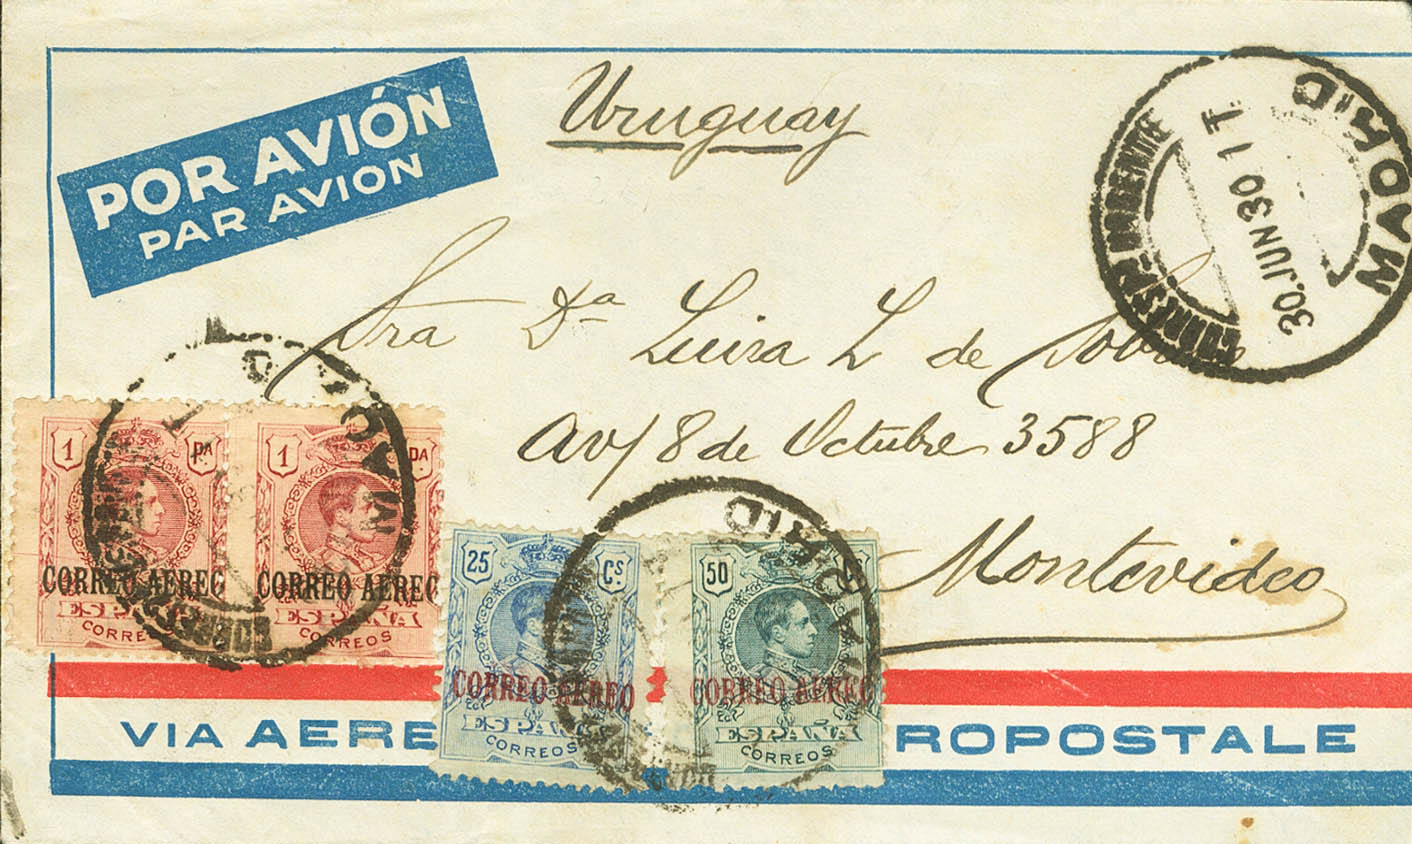 POR AVIÓN
PAR AVION
Uruguay
MADRID
30.JUN30 1T.
Sra Dª Luisa L de
av/ 8 de Octubre 3588
Montevideo
1 Pª.
CORREO AEREO
ESPAÑA
CORREOS
1 Pª.
CORREO AEREO
ESPAÑA
CORREOS
MADRID
25 Cs
CORREO AEREO
ESPAÑA
CORREOS
50
CORREO AEREO
ESPAÑA
CORREOS
MADRID
VIA AERE ROPOSTALE